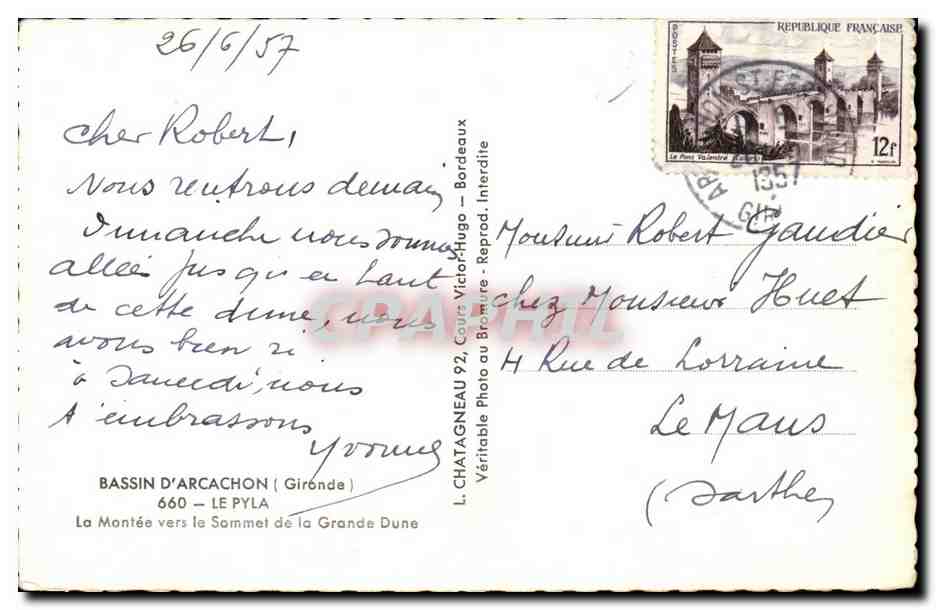 26/6/57
Cher Robert,
Nous rentrons demain
Dimanche nous sommes
allées jusqu'en haut
de cette dune, nous
avons bien ri
à Samedi, nous
t'embrassons
Yvonne
BASSIN D'ARCACHON (Gironde)
660 — LE PYLA
La Montée vers le Sommet de la Grande Dune
L. CHATAGNEAU 92, Cours Victor-Hugo — Bordeaux
Véritable Photo au Bromure - Reprod. Interdite
REPUBLIQUE FRANÇAISE
POSTES
Le Pont Valentré
12f
1957
Monsieur Robert Gaudier
chez Monsieur Huet
4 Rue de Lorraine
Le Mans
(Sarthe)
CPAPHIL